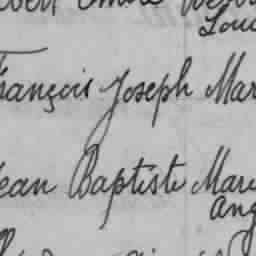 Lou
François Joseph Mar
Jean Baptiste Mare
Ang